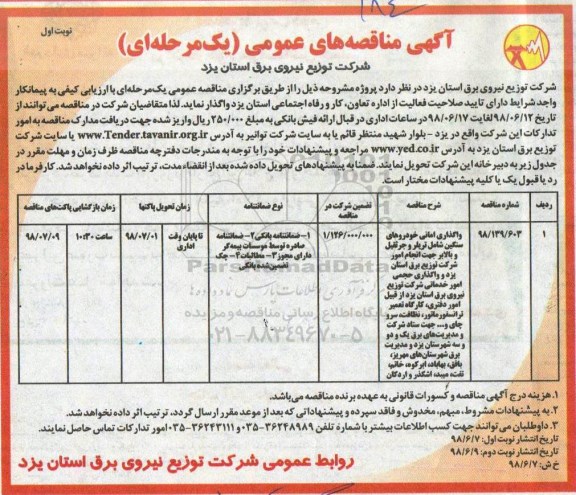 ۱۸۴
نوبت اول
آگهی مناقصه‌های عمومی (یک‌مرحله‌ای)
شرکت توزیع نیروی برق استان یزد
شرکت توزیع نیروی برق استان یزد در نظر دارد پروژه مشروحه ذیل را از طریق برگزاری مناقصه عمومی یک‌مرحله‌ای با ارزیابی کیفی به پیمانکار
واجد شرایط دارای تایید صلاحیت فعالیت از اداره تعاون، کار و رفاه اجتماعی استان یزد واگذار نماید. لذا متقاضیان شرکت در مناقصه می‌توانند از
تاریخ ۹۸/۰۶/۱۲ لغایت ۹۸/۰۶/۱۷ در ساعات اداری در قبال ارائه فیش بانکی به مبلغ ۲۵۰/۰۰۰ ریال واریز شده جهت دریافت مدارک مناقصه به امور
تدارکات این شرکت واقع در یزد - بلوار شهید منتظر قائم یا به سایت شرکت توانیر به آدرس www.Tender.tavanir.org.ir یا سایت شرکت
توزیع برق استان یزد به آدرس www.yed.co.ir مراجعه و پیشنهادات خود را با توجه به مندرجات دفترچه مناقصه ظرف زمان و مهلت مقرر در
جدول زیر به دبیرخانه این شرکت تحویل نمایند. ضمنا به پیشنهادهای تحویل داده شده بعد از انقضاء مدت، ترتیب اثر داده نخواهد شد. کارفرما در
رد یا قبول یک یا کلیه پیشنهادات مختار است.
ردیف شماره مناقصه شرح مناقصه تضمین شرکت در مناقصه نوع ضمانتنامه زمان تحویل پاکتها زمان بازگشایی پاکت‌های مناقصه
۱ ۹۸/۱۳۹/۶۰۳ واگذاری امانی خودروهای ۱/۱۲۶/۰۰۰/۰۰۰ ۱- ضمانتنامه بانکی ۲- ضمانتنامه تا پایان وقت ۹۸/۰۷/۰۱ ساعت ۱۰:۳۰ ۹۸/۰۷/۰۹
سنگین شامل تریلر و جرثقیل صادره توسط موسسات بیمه‌گر اداری
و بالابر جهت انجام امور دارای مجوز ۳- مطالبات ۴- چک
شرکت توزیع برق استان تضمین شده بانکی
یزد و واگذاری حجمی
امور خدماتی شرکت توزیع
نیروی برق استان یزد از قبیل
امور دفتری، کارگاه تعمیر
ترانسفورماتور، نظافت، سرو
چای و... جهت ستاد شرکت
و مدیریت‌های برق یک و دو
و سه شهرستان یزد و مدیریت
برق شهرستان‌های مهریز،
بافق، بهاباد، ابرکوه، خاتم،
تفت، میبد، اشکذر و اردکان
ParsNamadData
پایگاه اطلاع رسانی مناقصه و مزایده
۰۲۱-۸۸۳۴۹۶۷۰-۵
۱. هزینه درج آگهی مناقصه و کسورات قانونی به عهده برنده مناقصه می‌باشد.
۲. به پیشنهادات مشروط، مبهم، مخدوش و فاقد سپرده و پیشنهاداتی که بعد از موعد مقرر ارسال گردد، ترتیب اثر داده نخواهد شد.
۳. داوطلبان می‌توانند جهت کسب اطلاعات بیشتر با شماره تلفن ۰۳۵-۳۶۲۴۸۹۸۹ و ۰۳۵-۳۶۲۴۳۱۱۱ امور تدارکات تماس حاصل نمایند.
تاریخ انتشار نوبت اول: ۹۸/۶/۷
تاریخ انتشار نوبت دوم: ۹۸/۶/۹
خ ش: ۹۸/۶/۷
روابط عمومی شرکت توزیع نیروی برق استان یزد